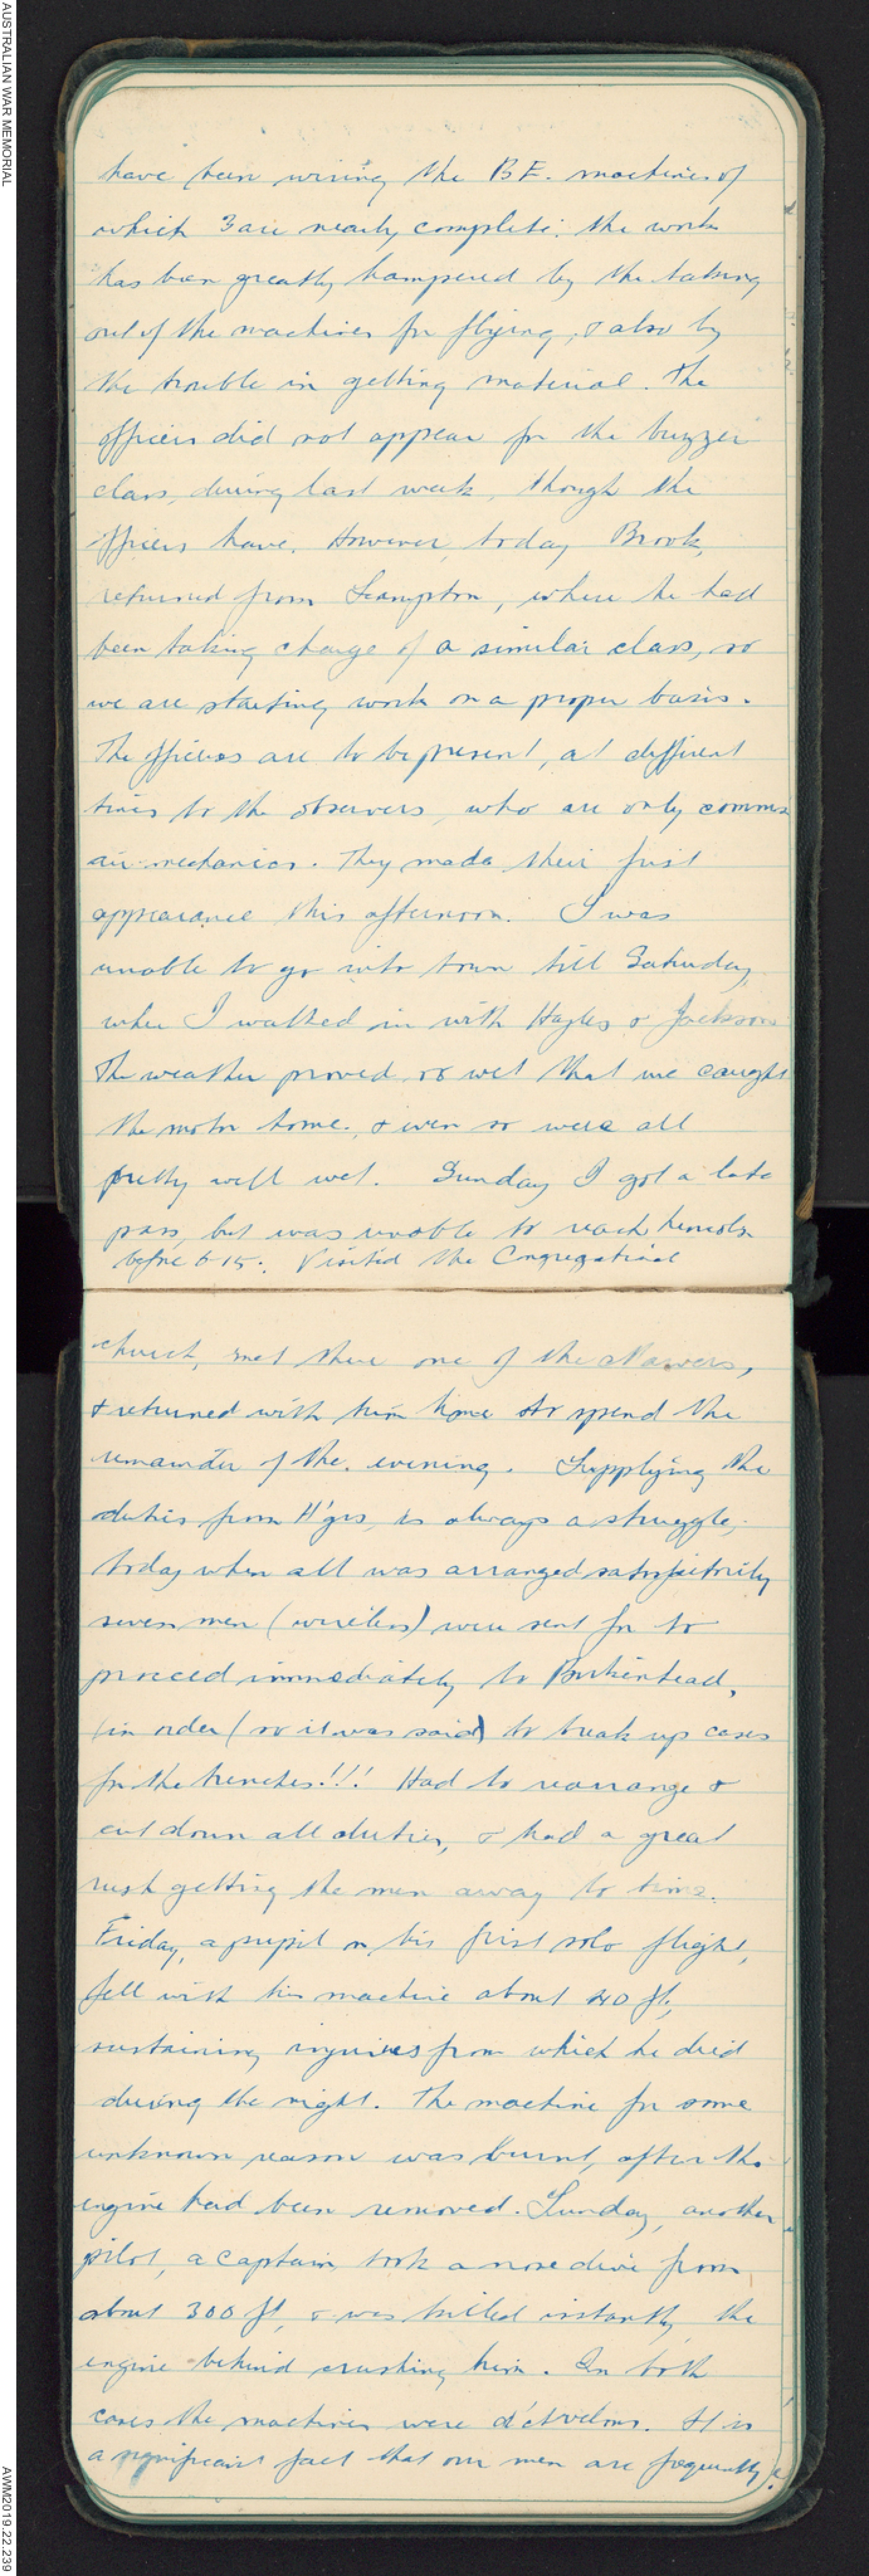 AUSTRALIAN WAR MEMORIAL
have been wiring the B.E. machines of
which 3 are nearly complete; the work
has been greatly hampered by the taking
out of the machines for flying, & also by
the trouble in getting material. The
officers did not appear for the buzzer
class, during last week, though the
officers have. However, today Brook,
returned from Scampton, where he had
been taking charge of a similar class, so
we are starting work on a proper basis.
The officers are to be present, at different
times to the observers, who are only common
air-mechanics. They made their first
appearance this afternoon. I was
unable to go into town till Saturday,
when I walked in with Hayles & Jackson
The weather proved so wet that we caught
the motor home, & even so were all
pretty well wet. Sunday I got a late
pass, but was unable to reach Lincoln
before 6-15. Visited the Congregational
church, met there one of the
& returned with him home to spend the
remainder of the evening. Supplying the
duties from H'qrs, is always a struggle;
today when all was arranged satisfactorily
seven men (wireless) were sent for to
proceed immediately to Birkenhead,
(in order (so it was said) to break up cases
for the trenches!!! Had to rearrange &
cut down all duties, & had a great
rush getting the men away to time.
Friday, a pupil on his first solo flight,
fell with his machine about 40 ft,
sustaining injuries from which he died
during the night. The machine for some
unknown reason was burnt, after the
engine had been removed. Sunday, another
pilot, a captain, took a nose dive from
about 300 ft, & was killed instantly, the
engine behind crushing him. In both
cases the machines were
It is
a significant fact that our men are frequently
AWM2019.22.239